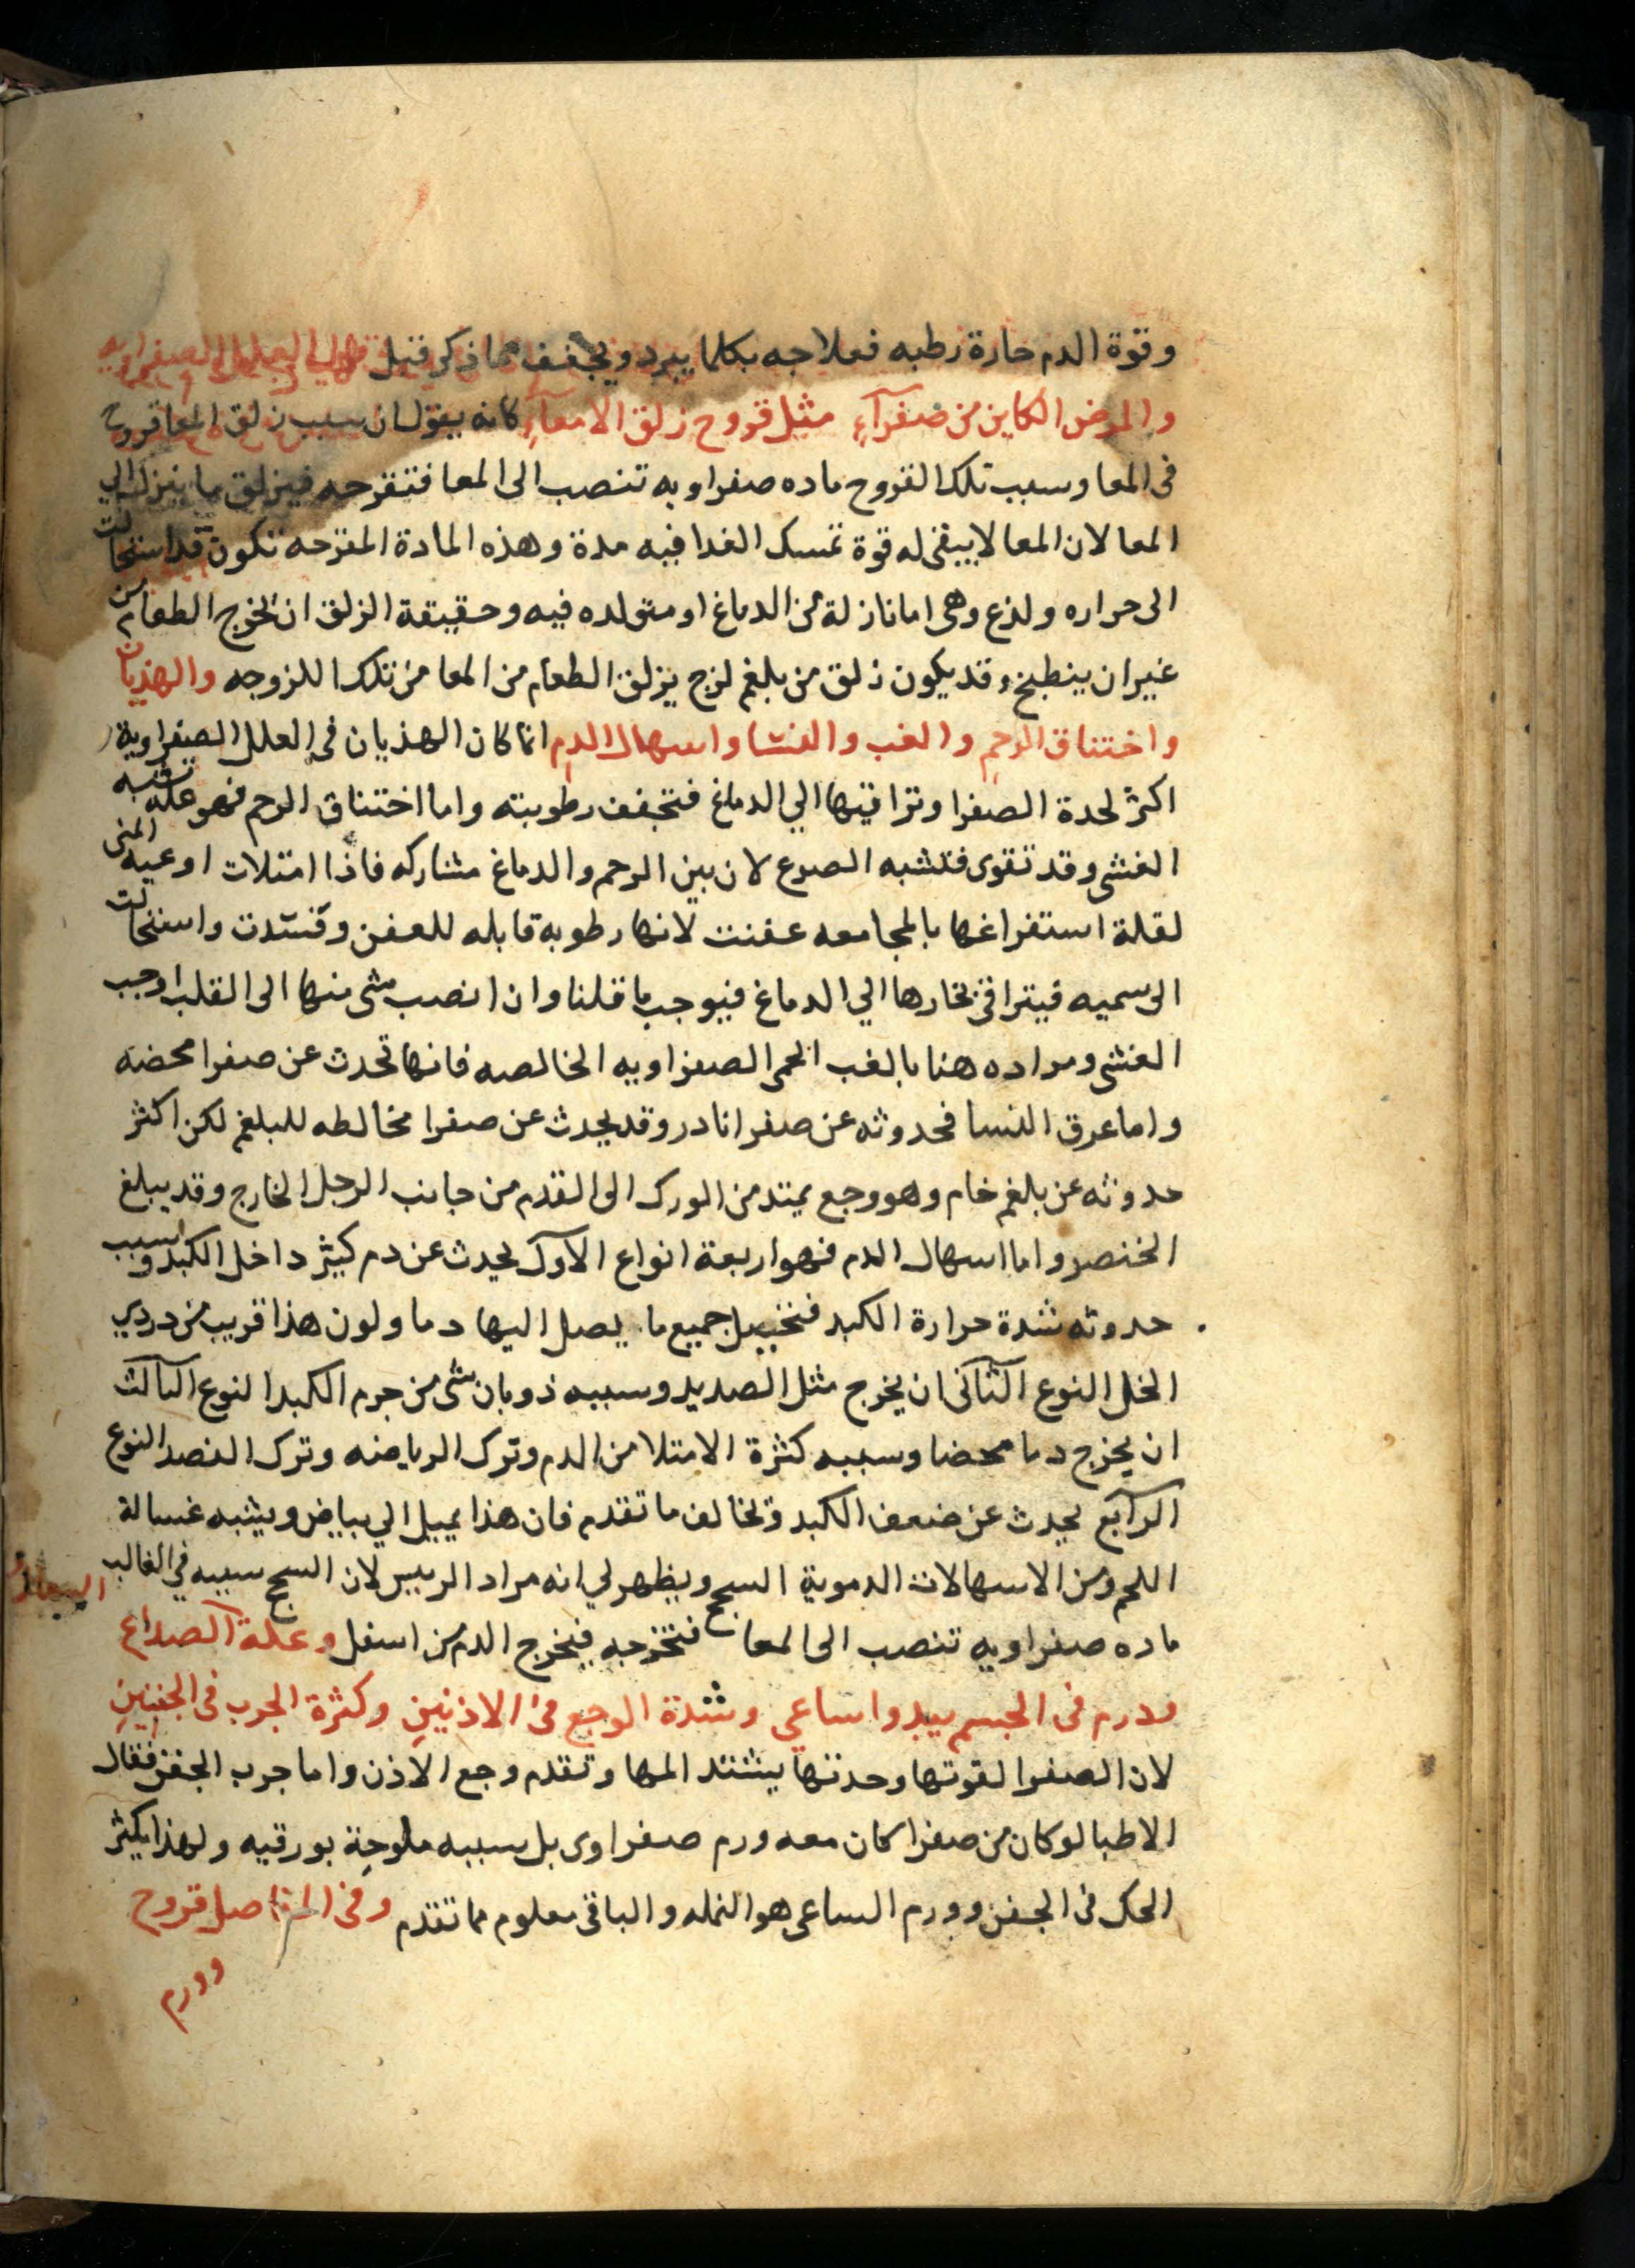 وقوة الدم حارة رطبه فعلاجه بكلما يبرد ويجفف مما ذكر قبل
والمرض الكاين من صفرآءِ مثل قروح زلق الامعآءِ كانه يقول ان سبب زلق المعا قروح
فى المعا وسبب تلك القروح ماده صفراويه تنصب الى المعا فتقرحه فيزلق ما ينزل الي
المعا لان المعا لا يبقى له قوة تمسك الغدا فيه مدة وهذه المادة المقرحه تكون قد استحالت
الى حراره ولذع وهى اما نازلة من الدماغ او متولده فيه وحقيقة الزلق ان يخرج الطعام من
غير ان ينطبخ وقد يكون زلق من بلغم لزج يزلق الطعام من المعا من تلك اللزوجه والهذيان
واختناق الرحم والغب والنسا واسهال الدم انما كان الهذيان فى العلل الصفراوية
اكثر لحدة الصفرا وتراقيها الي الدماغ فتجفف رطوبته واما اختناق الرحم فهو علة تشبه
الغشى وقد تقوى فتشبه الصرع لان بين الرحم والدماغ مشاركه فاذا امتلات اوعيه المنى
لقلة استفراغها بالمجامعه عفنت لانها رطوبة قابله للعفن وفسدت واستحالت
الى سميه فيتراقى بخارها الي الدماغ فيوجب ما قلنا وان انصب شى منها الى القلب اوجب
الغشى ومراده هنا بالغب الحمى الصفراويه الخالصه فانها تحدث عن صفرا محضه
واما عرق النسا فحدوثه عن صفرا نادر وقد يحدث عن صفرا مخالطه للبلغم لكن اكثر
حدوثه عن بلغم خام وهو وجع يمتد من الورك الى القدم من جانب الرجل الخارج وقد يبلغ
الخنصر واما اسهال الدم فهو اربعة انواع الاول يحدث عن دم كثير داخل الكبد وسبب
حدوثه شدة حرارة الكبد فتحيل جميع ما يصل اليها دما ولون هذا قريب من دردي
الخل النوع الثانى ان يخرج مثل الصديد وسببه ذوبان شى من جرم الكبد النوع الثالث
ان يخرج دما محضا وسببه كثرة الامتلا من الدم وترك الرياضه وترك الفصد النوع
الرابع يحدث عن ضعف الكبد وتخالف ما تقدم فان هذا يميل الي بياض ويشبه غسالة
اللحم ومن الاسهالات الدموية السحج ويظهر لي انه مراد الرييس لان السحج سببه في الغالب
ماده صفراويه تنصب الى المعا فتخرجه فيخرج الدم من اسفل وعلة الصداع
وورم فى الجسم يبدوا ساعي وشدة الوجع فى الاذنينِ وكثرة الجرب فى الجفنينِ
لان الصفرا لقوتها وحدتها يشتد المها وتقدم وجع الاذن واما جرب الجفن فقال
الاطبا لو كان من صفرا كان معه ورم صفراوى بل سببه ملوحة بورقيه ولهذا يكثر
الحك فى الجفن وورم الساعى هو النمله والباقى معلوم مما تقدم وفى المفاصل قروح
وورم